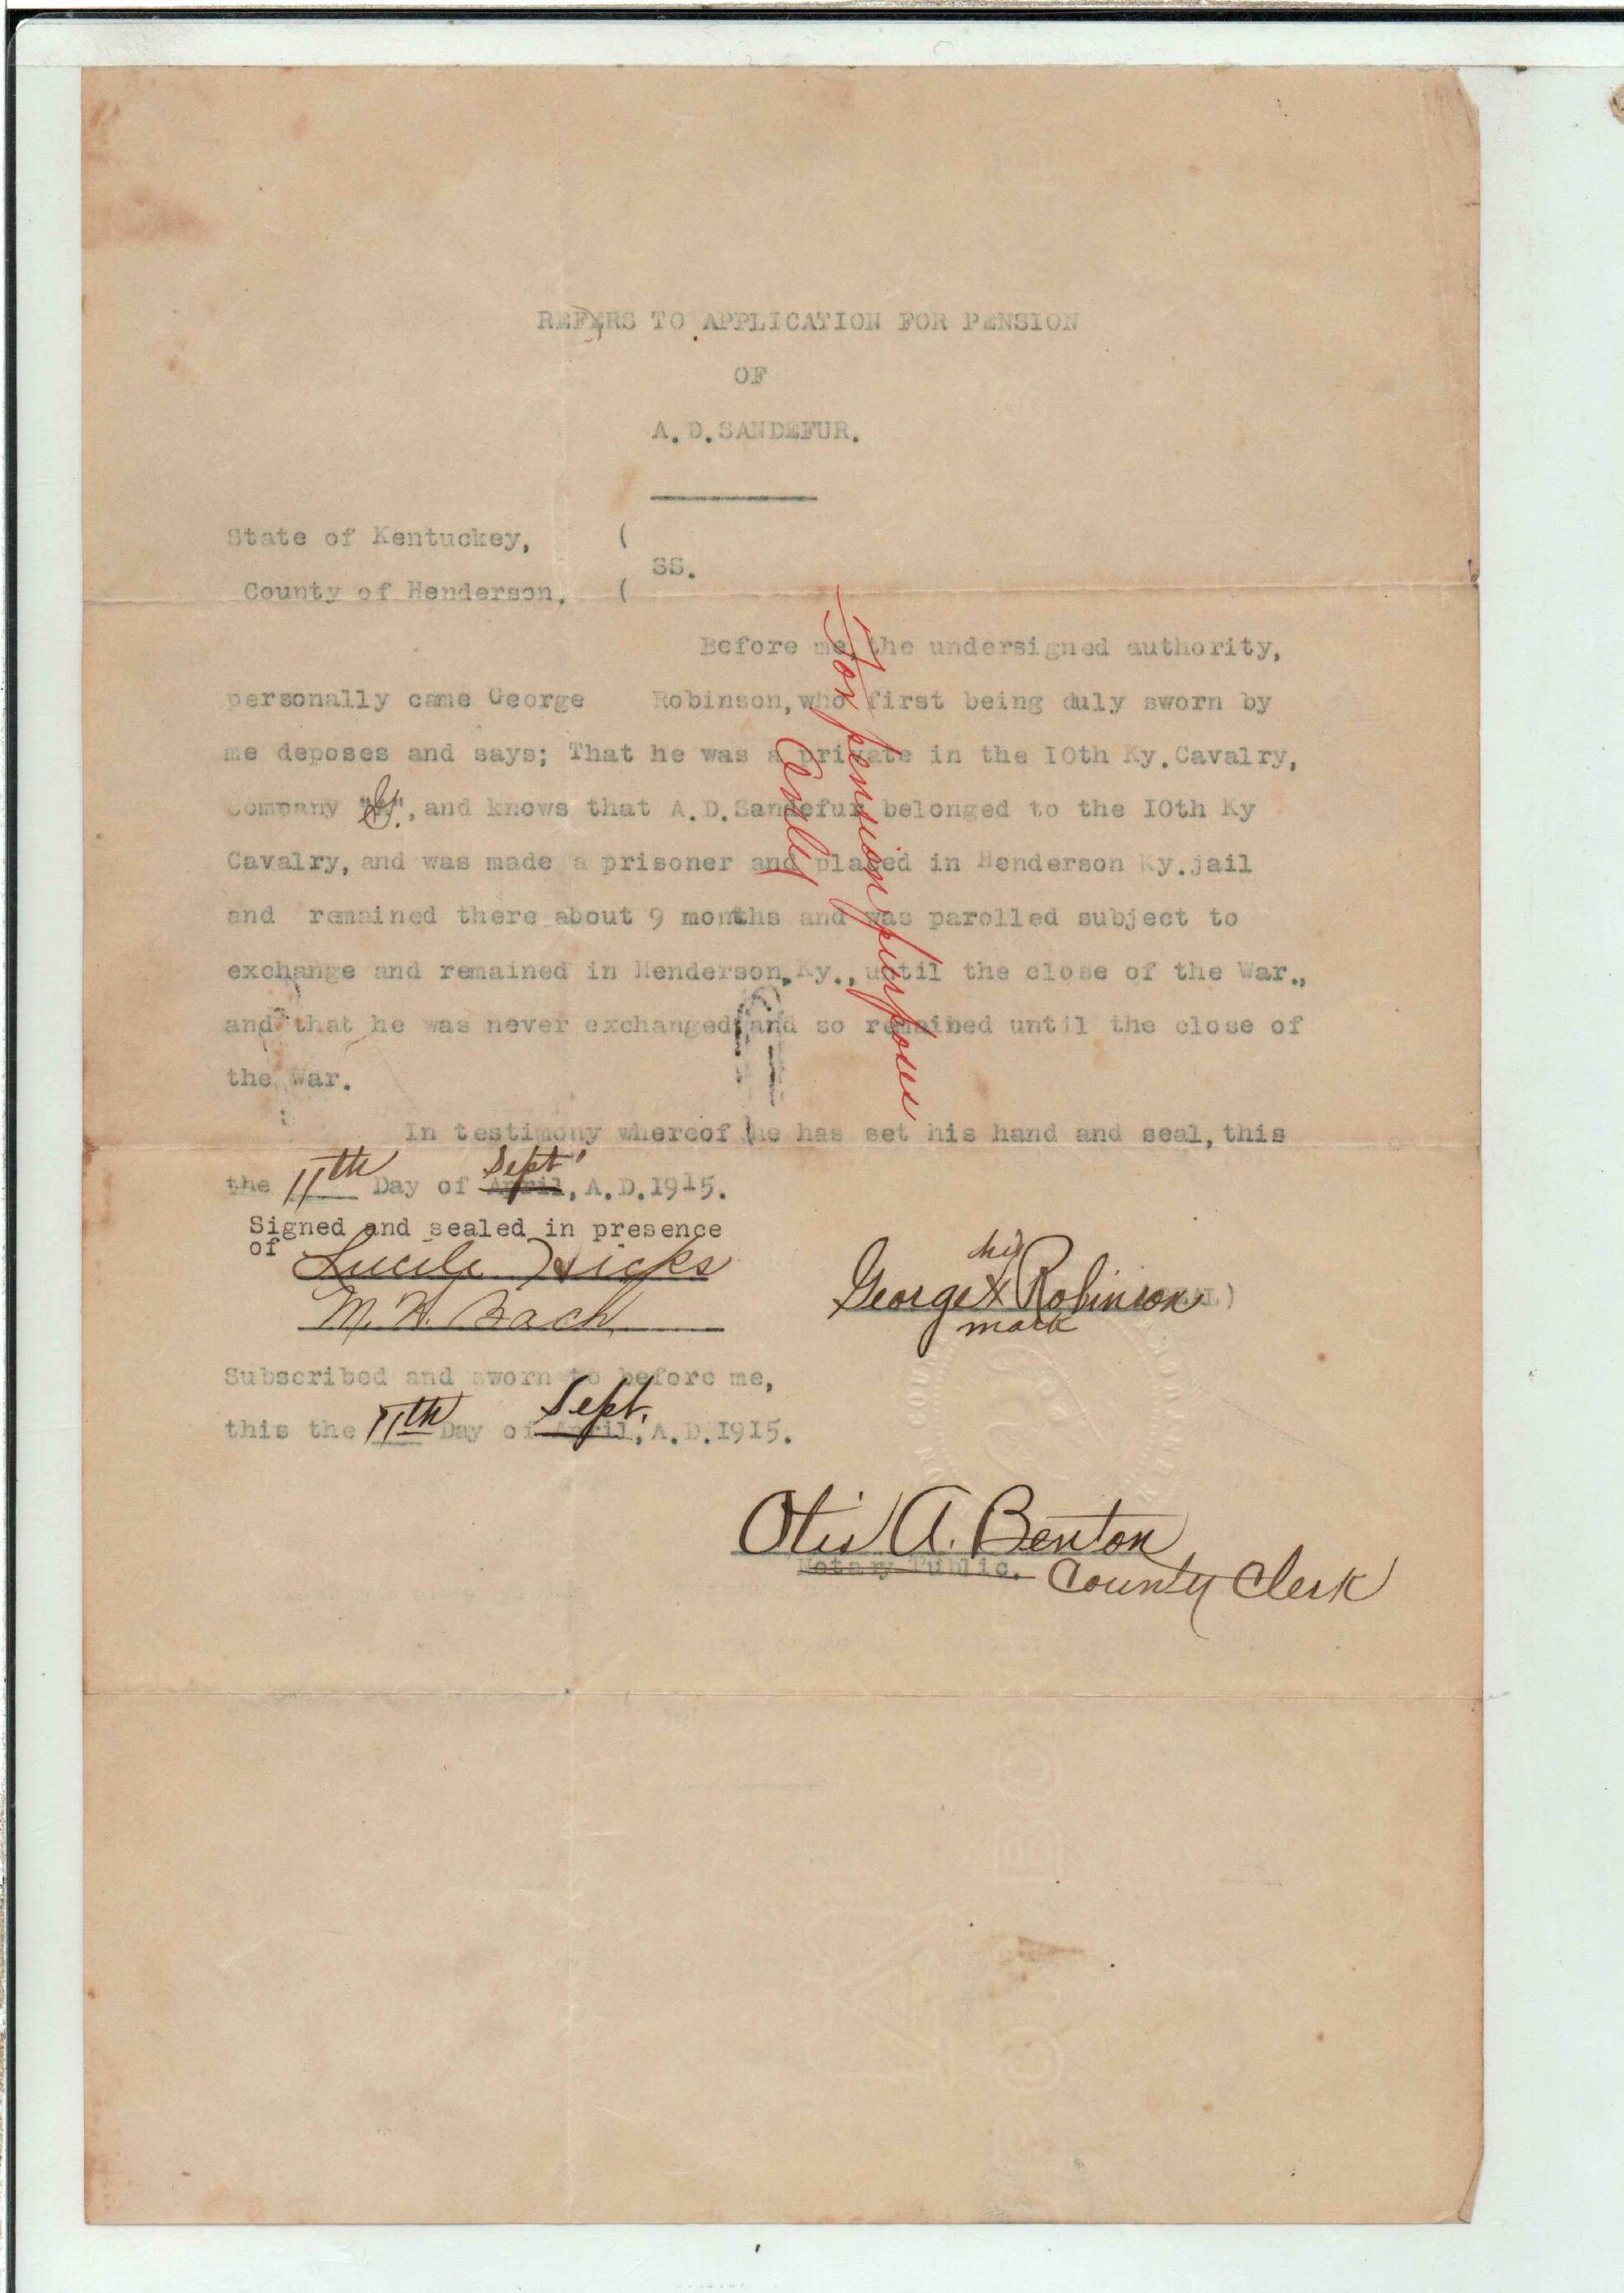 REFERS TO APPLICATION FOR PENSION
OF
A.D.SANDEFUR.
State of Kentuckey, (
SS.
County of Henderson, (
Before me, the undersigned authority,
personally came George Robinson, who first being duly sworn by
me deposes and says; That he was a private in the 10th Ky.Cavalry,
Company " ", and knows that A.D.Sandefur belonged to the 10th Ky
Cavalry, and was made a prisoner and placed in Henderson Ky.jail
and remained there about 9 months and was parolled subject to
exchange and remained in Henderson, Ky., until the close of the War.,
and that he was never exchanged, and so remained until the close of
the War.
For pension purposes
Only
In testimony whereof he has set his hand and seal, this
the 11th Day of Sept April, A.D.1915.
Signed and sealed in presence
of Lucile Hicks
M. H. Bach
his
George X Robinson L)
mark
Subscribed and sworn to before me,
this the 11th Day of Sept. April, A.D.1915.
Otis A. Benton
Notary Public. County Clerk